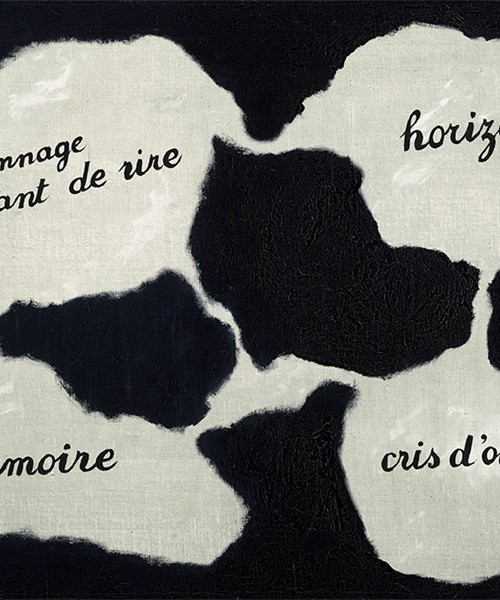 nnage
ant de rire
horiz
moire
cris d'o